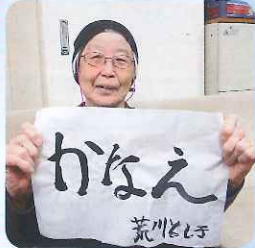 かなえ
荒川とし子